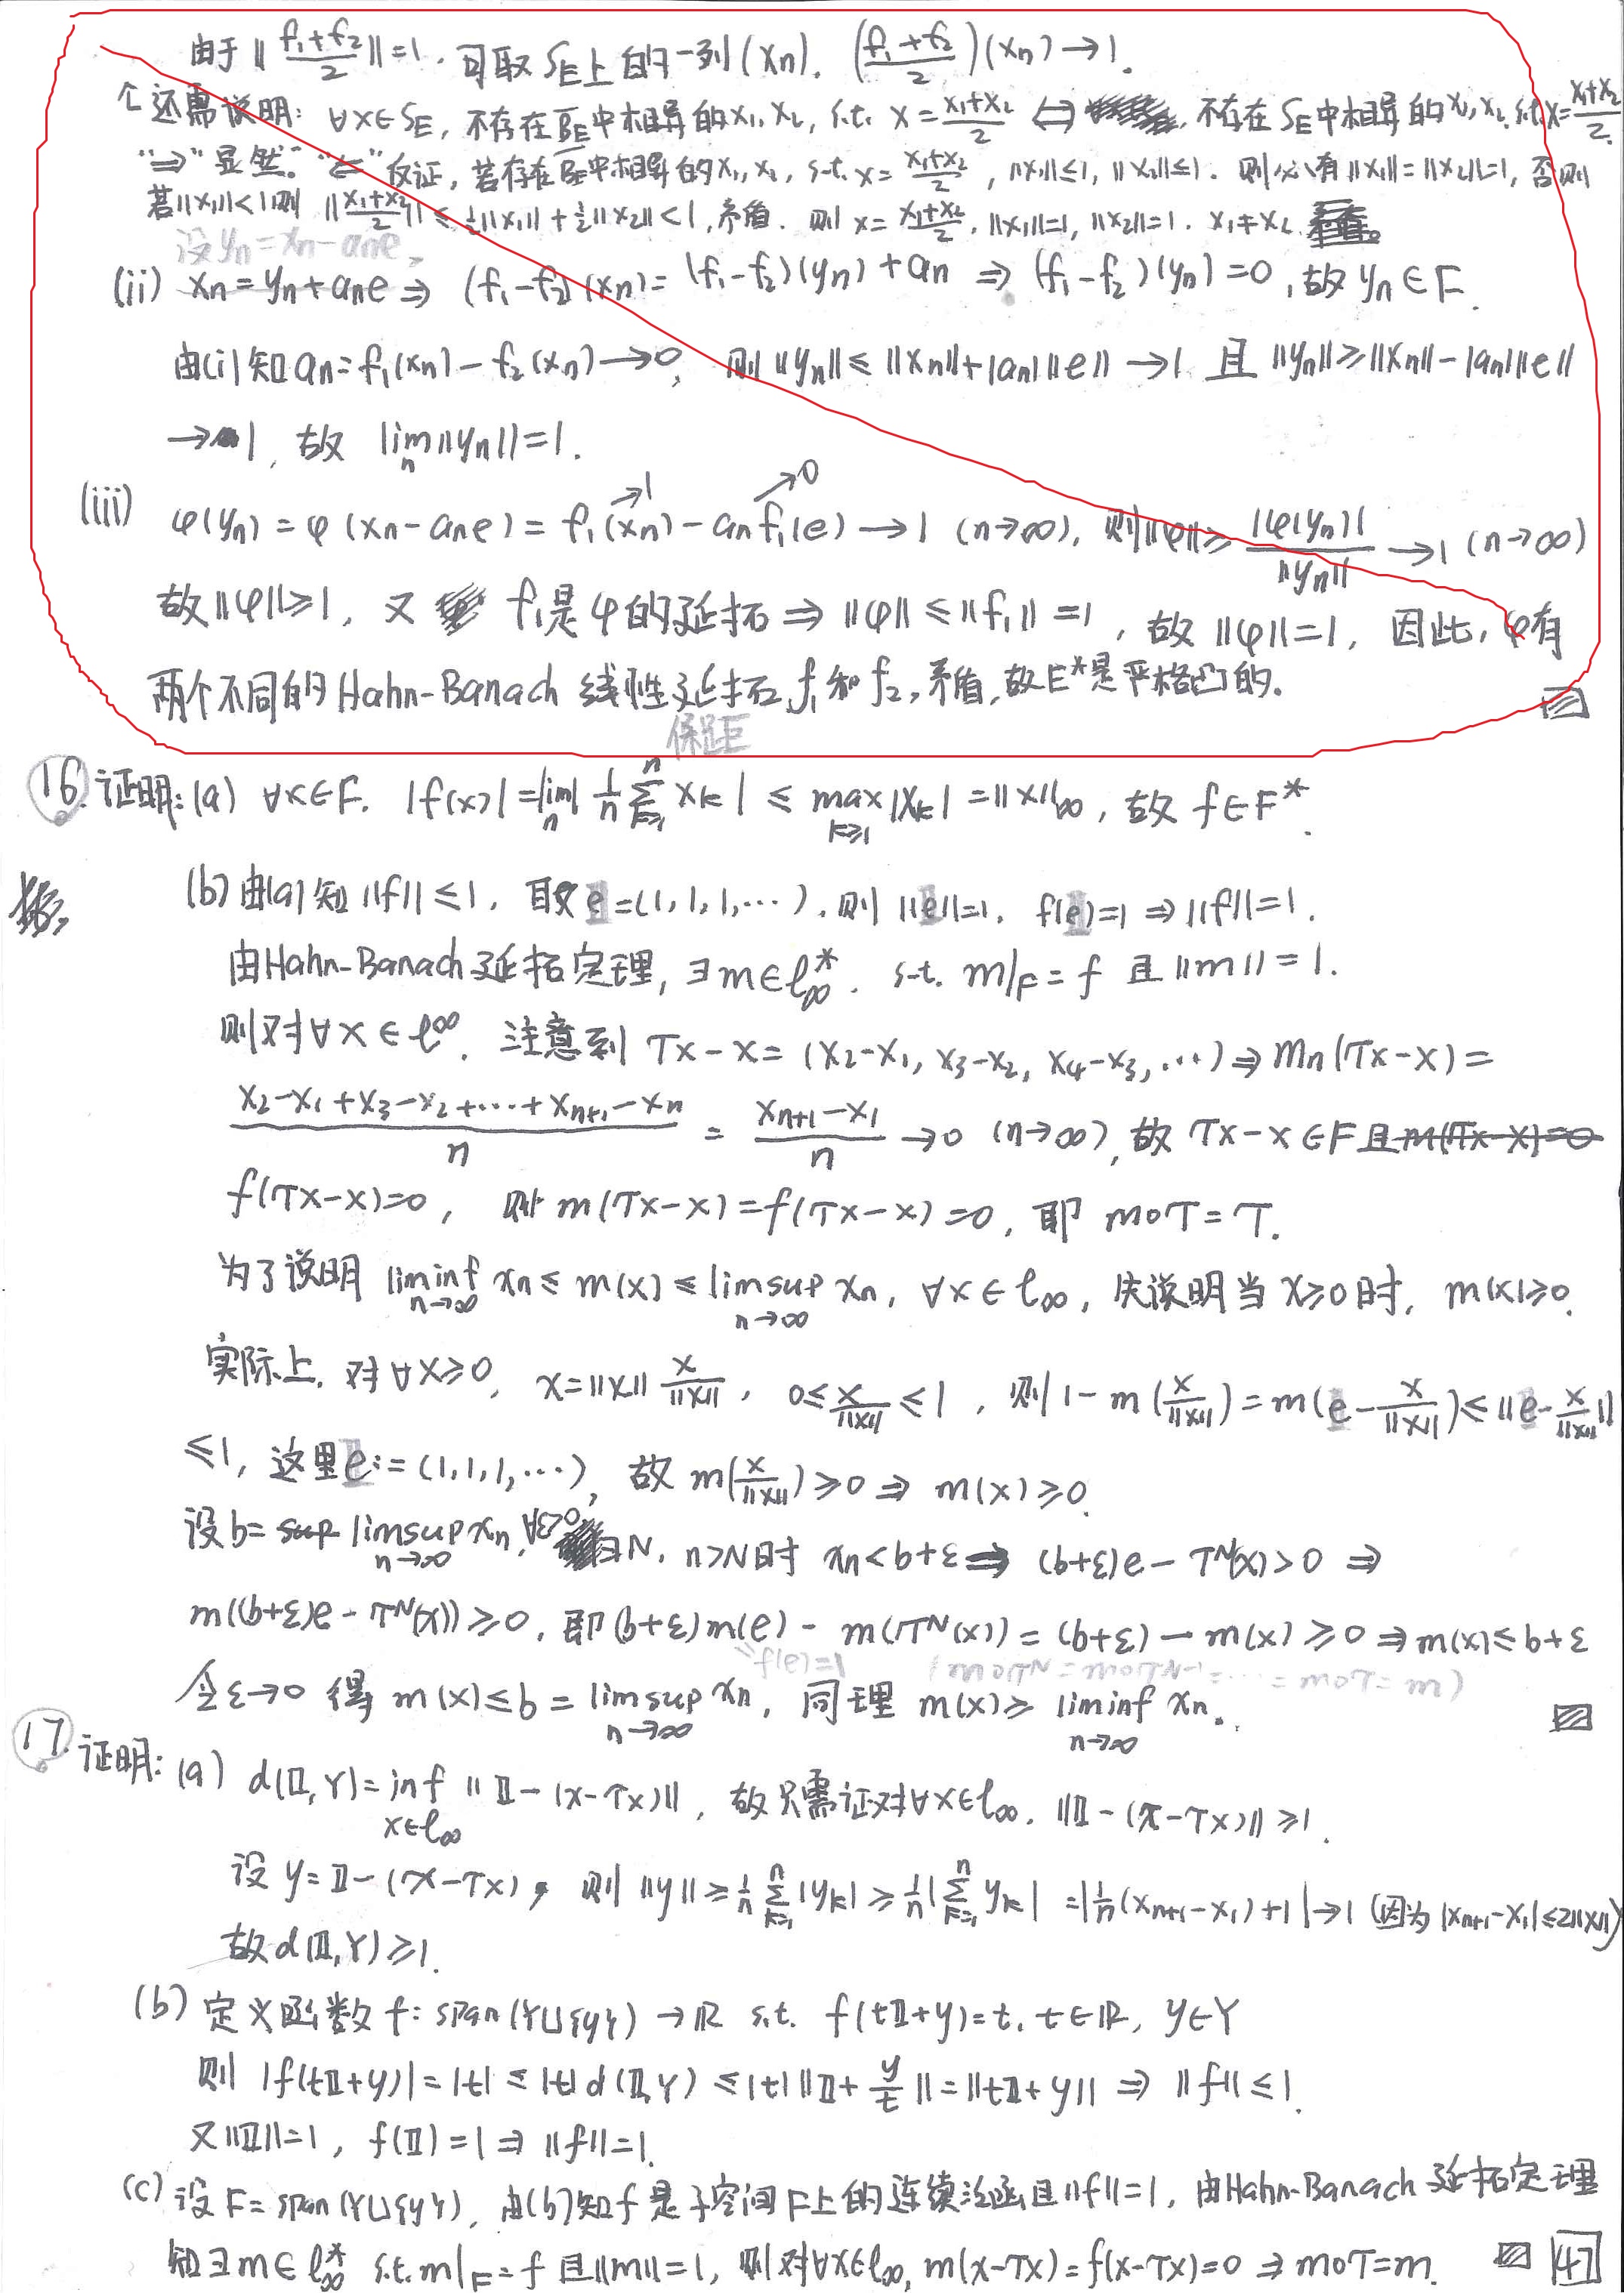 由于 ‖(f₁+f₂)/2‖=1. 可取 S_E上的一列(xₙ), ((f₁+f₂)/2)(xₙ)→1.
还需说明: ∀x∈S_E, 不存在B̄_E中相异的x₁,x₂, s.t. x=(x₁+x₂)/2 ⇔ 不存在S_E中相异的x₁,x₂ s.t. x=(x₁+x₂)/2.
"⇒"显然. "⇐"反证, 若存在B̄_E中相异的x₁,x₂, s.t. x=(x₁+x₂)/2, ‖x₁‖≤1, ‖x₂‖≤1. 则必有‖x₁‖=‖x₂‖=1, 否则
若‖x₁‖<1则 ‖(x₁+x₂)/2‖≤½‖x₁‖+½‖x₂‖<1, 矛盾. 则 x=(x₁+x₂)/2, ‖x₁‖=1, ‖x₂‖=1. x₁≠x₂
设yₙ=xₙ-aₙe,
(ii) xₙ=yₙ+aₙe ⇒ (f₁-f₂)(xₙ)=(f₁-f₂)(yₙ)+aₙ ⇒ (f₁-f₂)(yₙ)=0, 故 yₙ∈F.
由(i)知aₙ=f₁(xₙ)-f₂(xₙ)→0, 则‖yₙ‖≤‖xₙ‖+|aₙ|‖e‖→1 且 ‖yₙ‖≥‖xₙ‖-|aₙ|‖e‖
→1, 故 lim_n‖yₙ‖=1.
(iii) φ(yₙ)=φ(xₙ-aₙe)=f₁(xₙ)-aₙf₁(e)→1 (n→∞), 则‖φ‖≥‖φ(yₙ)‖/‖yₙ‖→1 (n→∞)
→1 →0
故‖φ‖≥1, 又 f₁是φ的延拓⇒‖φ‖≤‖f₁‖=1, 故‖φ‖=1, 因此, φ有
两个不同的Hahn-Banach 线性延拓f₁和f₂, 矛盾, 故E*是严格凸的.
保距
16. 证明: (a) ∀x∈F. |f(x)|=|lim_n 1/n ∑_{k=1}^n x_k| ≤ max_{k≥1}|x_k|=‖x‖_∞, 故 f∈F*.
(b) 由(a)知‖f‖≤1, 取𝕀=(1,1,1,…), 则‖𝕀‖=1, f(𝕀)=1⇒‖f‖=1.
由Hahn-Banach延拓定理, ∃m∈ℓ_∞*, s.t. m|_F=f 且‖m‖=1.
则对∀x∈ℓ^∞. 注意到 Tx-x=(x₂-x₁, x₃-x₂, x₄-x₃, …)⇒mₙ(Tx-x)=
(x₂-x₁+x₃-x₂+…+xₙ₊₁-xₙ)/n = (xₙ₊₁-x₁)/n →0 (n→∞), 故 Tx-x∈F 且m(Tx-x)=0
f(Tx-x)=0, 则 m(Tx-x)=f(Tx-x)=0, 即 m∘T=T.
为了说明 liminf_{n→∞} xₙ≤m(x)≤limsup_{n→∞} xₙ, ∀x∈ℓ_∞, 先说明当x≥0时, m(x)≥0.
实际上, 对∀x≥0, x=‖x‖ x/‖x‖, 0≤x/‖x‖≤1, 则 1-m(x/‖x‖)=m(𝕀-x/‖x‖)≤‖𝕀-x/‖x‖‖
≤1, 这里𝕀:=(1,1,1,…), 故 m(x/‖x‖)≥0⇒m(x)≥0.
设b=sup limsup_{n→∞} xₙ, ∀ε>0 ∃N, n>N时 xₙ<b+ε⇒ (b+ε)e-T^N(x)>0 ⇒
m((b+ε)e-T^N(x))≥0, 即(b+ε)m(e)-m(T^N(x))=(b+ε)-m(x)≥0⇒m(x)≤b+ε
=f(e)=1 (m∘T^N=m∘T^{N-1}=…=m∘T=m)
令ε→0 得 m(x)≤b=limsup_{n→∞} xₙ, 同理 m(x)≥liminf_{n→∞} xₙ.
17. 证明: (a) d(𝕀,Y)=inf_{x∈ℓ_∞}‖𝕀-(x-Tx)‖, 故只需证对∀x∈ℓ_∞, ‖𝕀-(x-Tx)‖≥1.
设 y=𝕀-(x-Tx), 则 ‖y‖≥1/n ∑_{k=1}^n|y_k|≥1/n|∑_{k=1}^n y_k|=|1/n(xₙ₊₁-x₁)+1|→1 (因为|xₙ₊₁-x₁|≤2‖x‖)
故d(𝕀,Y)≥1.
(b) 定义函数 f: span(Y∪{y})→ℝ s.t. f(t𝕀+y)=t, t∈ℝ, y∈Y
则 |f(t𝕀+y)|=|t|≤|t|d(𝕀,Y)≤|t|‖𝕀+y/t‖=‖t𝕀+y‖⇒‖f‖≤1.
又‖𝕀‖=1, f(𝕀)=1⇒‖f‖=1.
(c) 设F=span(Y∪{y}), 由(b)知f是子空间F上的连续泛函且‖f‖=1, 由Hahn-Banach延拓定理
知∃m∈ℓ_∞* s.t. m|_F=f 且‖m‖=1, 则对∀x∈ℓ_∞, m(x-Tx)=f(x-Tx)=0⇒m∘T=m.
47